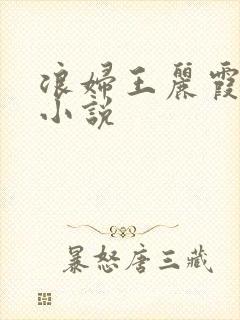 浪婦王麗霞
小說
暴怒唐三藏